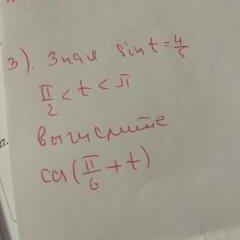 3). Зная sin t = 4/5
π/2 < t < π
вычислите
cos(π/6 + t)